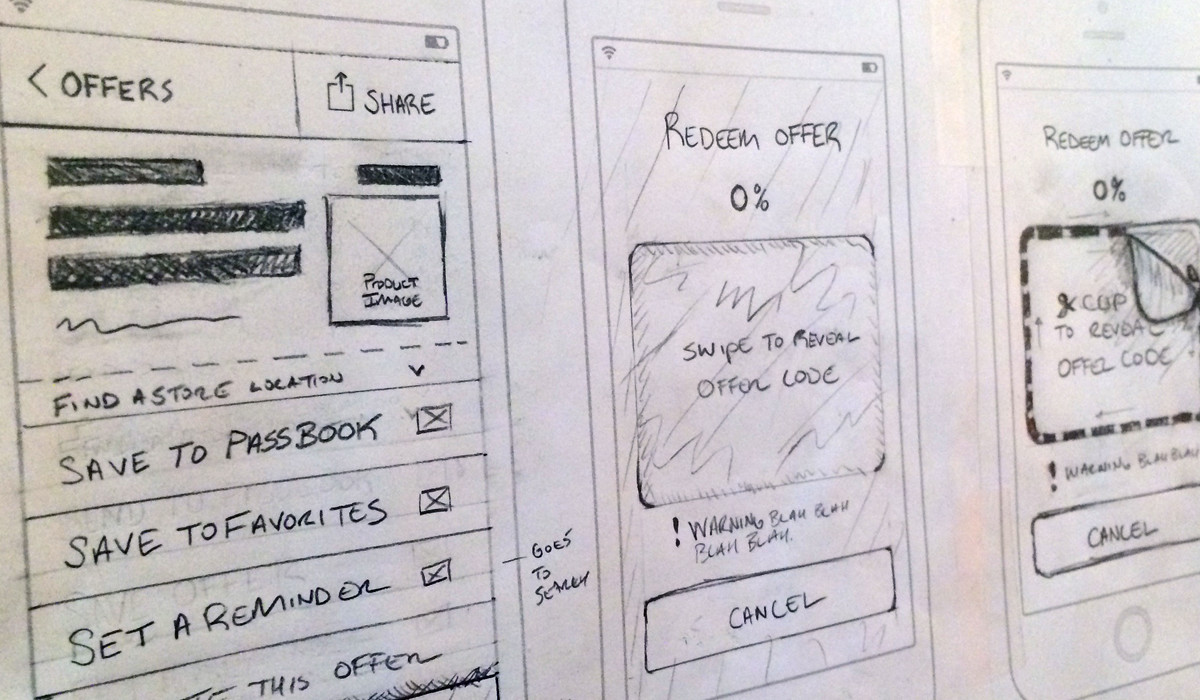 < OFFERS
SHARE
PRODUCT
IMAGE
FIND A STORE LOCATION
SAVE TO PASSBOOK
SAVE TO FAVORITES
SET A REMINDER
THIS OFFER
GOES
TO
SEARCH
REDEEM OFFER
0%
SWIPE TO REVEAL
OFFER CODE
! WARNING BLAH BLAH
BLAH BLAH.
CANCEL
REDEEM OFFER
0%
CLIP
TO REVEAL
OFFER CODE
! WARNING BLAH BLAH
CANCEL